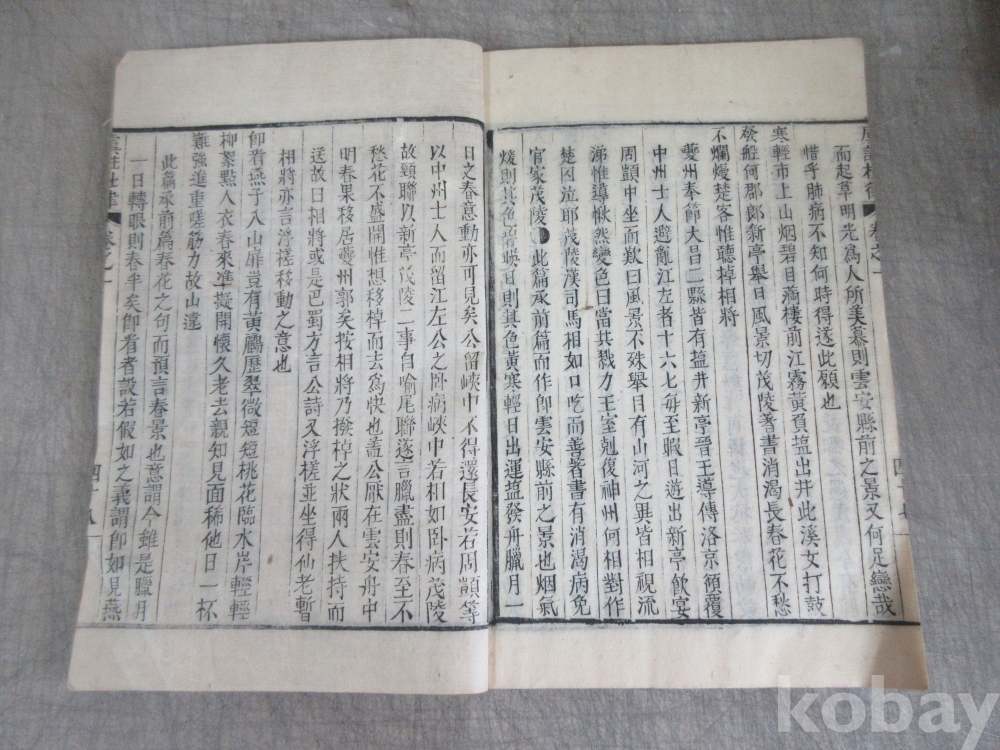 而起草明光爲人所羡慕則雲安縣前之景又何足戀哉
惜乎肺病不知何時得遂此願也
寒輕市上山烟碧日滿樓前江霧黃負塩出井此溪女打鼓
發船何郡郎新亭舉目風景切茂陵著書消渴長春花不愁
不爛熳楚客惟聽棹相將
夔州奉節大昌二縣皆有塩井新亭晉王導傳洛京傾覆
中州士人避亂江左者十六七毎至暇日遊出新亭飲宴
周顗中坐而歎曰風景不殊舉目有山河之異皆相視流
涕惟導愀然變色曰當共戮力王室剋復神州何相對作
楚囚泣耶茂陵漢司馬相如口吃而善著書有消渴病免
官家茂陵 此篇承前篇而作卽雲安縣前之景也烟氣
煖則其色碧暎日則其色黃寒輕日出運塩發舟臘月一
日之春意動亦可見矣公留峽中不得還長安若周顗等
以中州士人而留江左公之卧病峽中若相如卧病茂陵
故頸聯以新亭茂陵二事自喻尾聯遂言臘盡則春至不
愁花不盛開惟想移棹而去爲快也盖公厭在雲安舟中
明春果移居夔州郭矣按相將乃撩棹之狀兩人扶持而
送故曰相將或是巴蜀方言公詩又浮槎並坐得仙老暫
相將亦言浮槎移動之意也
卽看燕子入山扉豈有黃鸝歷翠微短短桃花臨水岸輕輕
柳絮點人衣春來凖擬開懷久老去親知見面稀他日一杯
難強進重嗟筋力故山違
此篇承前篇春花之句而預言春景也意謂今雖是臘月
一日轉眼則春半矣卽看者設若假如之義謂卽如見燕
虞註杜律 卷之一 四十八